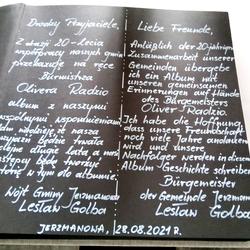 Drodzy Przyjaciele,
Z okazji 20-lecia
współpracy naszych gmin
przekazuję na ręce
Burmistrza
Olivera Radzio
album z naszymi
wspólnymi wspomnieniami
nadzieję, że nasza
przyjaźń będzie trwała
długie lata a nasi
następcy będą tworzyć
w tym albumie.
Wójt Gminy Jerzmanowa
Lesław Golba
Liebe Freunde,
Anläßlich der 20-jährigen
Zusammenarbeit unserer
Gemeinden übergebe
ich ein Album mit
unseren gemeinsamen
Erinnerungen auf Hände
des Bürgermeisters
Oliver Radzio
Ich habe die Hoffnung,
dass unsere Freundschaft
noch viele Jahre andauern
wird und unsere
Nachfolger werden in diesem
Album-Geschichte schreiben
Bürgermeister
der Gemeinde Jerzmanowa
Lesław Golba
JERZMANOWA, 28.08.2021r.